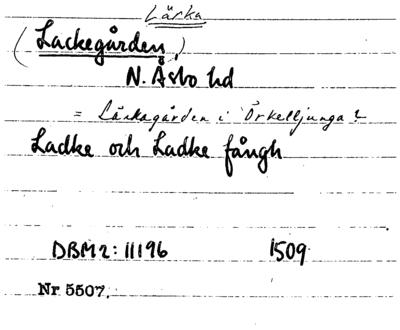 Lärka
(Lackegården)
N. Åsbo hd
= Lärkagården i Örkelljunga?
Ladke och Ladke fångh
DBM2: 11196 1509
Nr 5507.